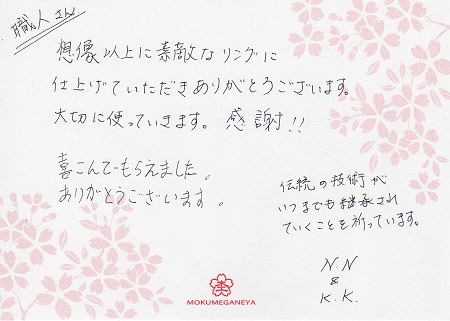 職人さん
想像以上に素敵なリングに
仕上げていただきありがとうございます。
大切に使っていきます。感謝!!
喜こんでもらえました。
ありがとうございます。
伝統の技術が
いつまでも継承され
ていくことを祈っています。
N.N
&
K.K.
MOKUMEGANEYA